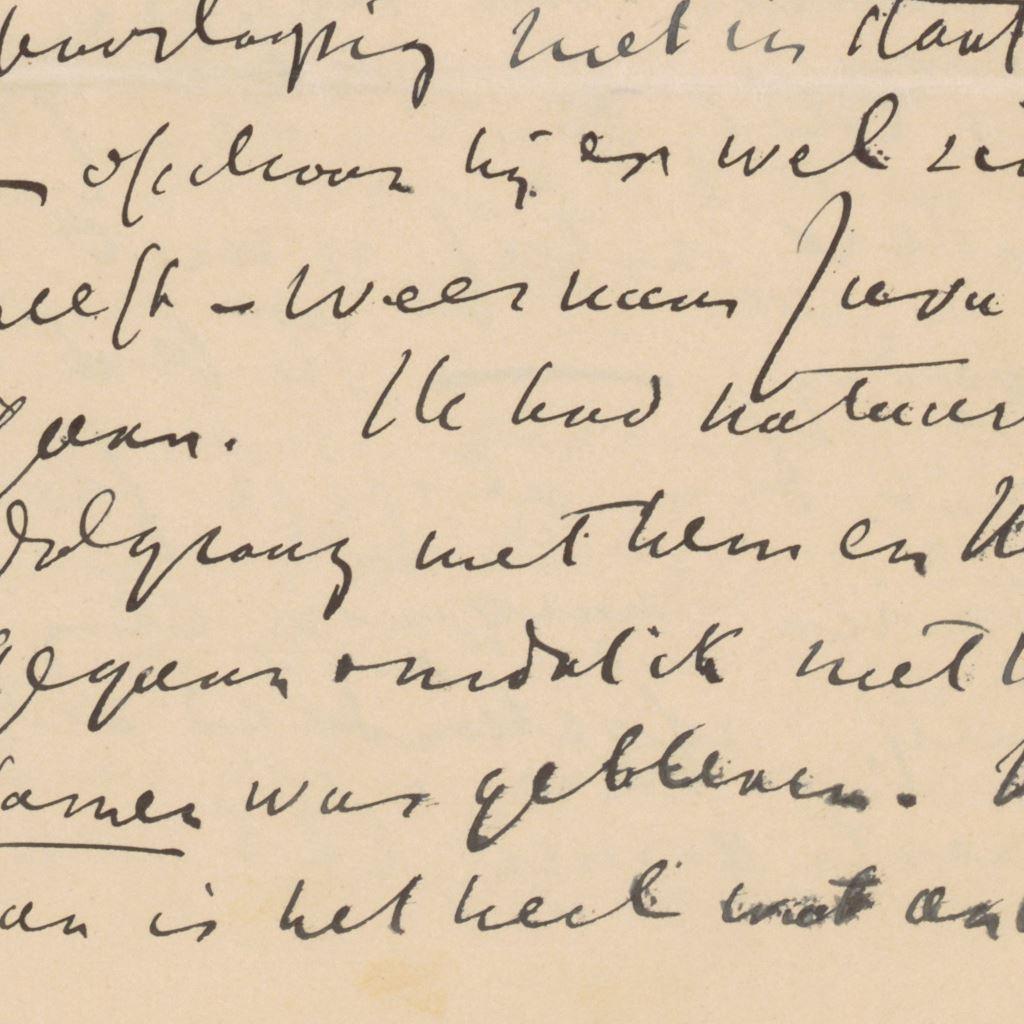 voorloopig niet in staat
- ofschoon hij er wel zin
heeft - weer naar Java
gaan. Ik had natuur
dolgraag met hem en
gegaan omdat ik niet
samen was gebleven.
an is het heel wat an